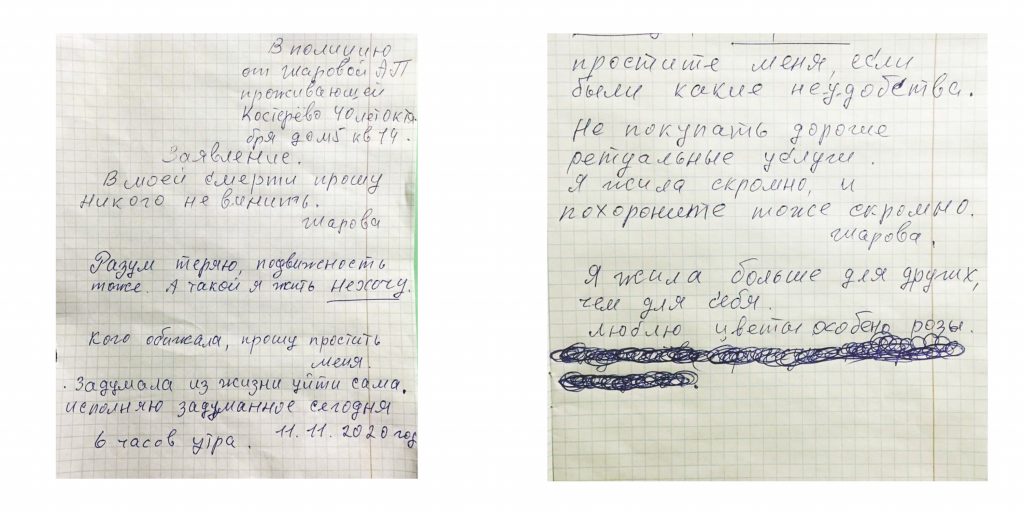 В полицию
от Жаровой АП
проживающей
Костерёво 40 лет Октя
бря дом 5 кв 14.
Заявление.
В моей смерти прошу
никого не винить.
Жарова
Разум теряю, подвижность
тоже. А такой я жить не хочу.
Кого обижала, прошу простить
меня.
Задумала из жизни уйти сама.
исполняю задуманное сегодня
6 часов утра. 11.11.2020 год
простите меня, если
были какие неудобства.
Не покупать дорогие
ретуальные услуги.
Я жила скромно, и
похороните тоже скромно.
Жарова.
Я жила больше для других,
чем для себя.
Люблю цветы особено розы.